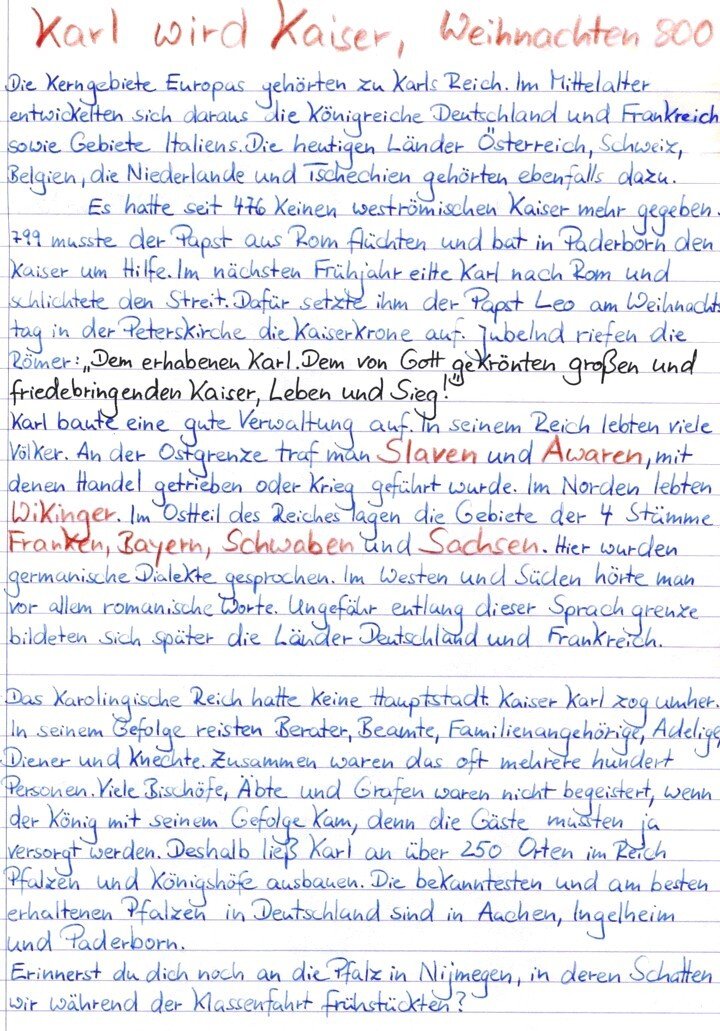 Karl wird Kaiser, Weihnachten 800
Die Kerngebiete Europas gehörten zu Karls Reich. Im Mittelalter
entwickelten sich daraus die Königreiche Deutschland und Frankreich
sowie Gebiete Italiens. Die heutigen Länder Österreich, Schweiz,
Belgien, die Niederlande und Tschechien gehörten ebenfalls dazu.
Es hatte seit 476 keinen weströmischen Kaiser mehr gegeben.
799 musste der Papst aus Rom flüchten und bat in Paderborn den
Kaiser um Hilfe. Im nächsten Frühjahr eilte Karl nach Rom und
schlichtete den Streit. Dafür setzte ihm der Papst Leo am Weihnachts
tag in der Peterskirche die Kaiserkrone auf. Jubelnd riefen die
Römer: „Dem erhabenen Karl. Dem von Gott gekrönten großen und
friedebringenden Kaiser, Leben und Sieg!"
Karl baute eine gute Verwaltung auf. In seinem Reich lebten viele
Völker. An der Ostgrenze traf man Slaven und Awaren, mit
denen Handel getrieben oder Krieg geführt wurde. Im Norden lebten
Wikinger. Im Ostteil des Reiches lagen die Gebiete der 4 Stämme
Franken, Bayern, Schwaben und Sachsen. Hier wurden
germanische Dialekte gesprochen. Im Westen und Süden hörte man
vor allem romanische Worte. Ungefähr entlang dieser Sprachgrenze
bildeten sich später die Länder Deutschland und Frankreich.
Das Karolingische Reich hatte keine Hauptstadt. Kaiser Karl zog umher.
In seinem Gefolge reisten Berater, Beamte, Familienangehörige, Adelige,
Diener und Knechte. Zusammen waren das oft mehrere hundert
Personen. Viele Bischöfe, Äbte und Grafen waren nicht begeistert, wenn
der König mit seinem Gefolge kam, denn die Gäste mussten ja
versorgt werden. Deshalb ließ Karl an über 250 Orten im Reich
Pfalzen und Königshöfe ausbauen. Die bekanntesten und am besten
erhaltenen Pfalzen in Deutschland sind in Aachen, Ingelheim
und Paderborn.
Erinnerst du dich noch an die Pfalz in Nijmegen, in deren Schatten
wir während der Klassenfahrt frühstückten?